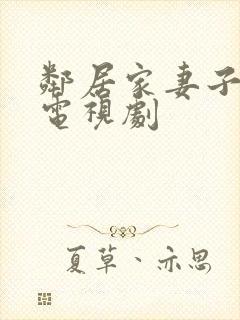 鄰居家妻子
電視劇
夏草、亦思